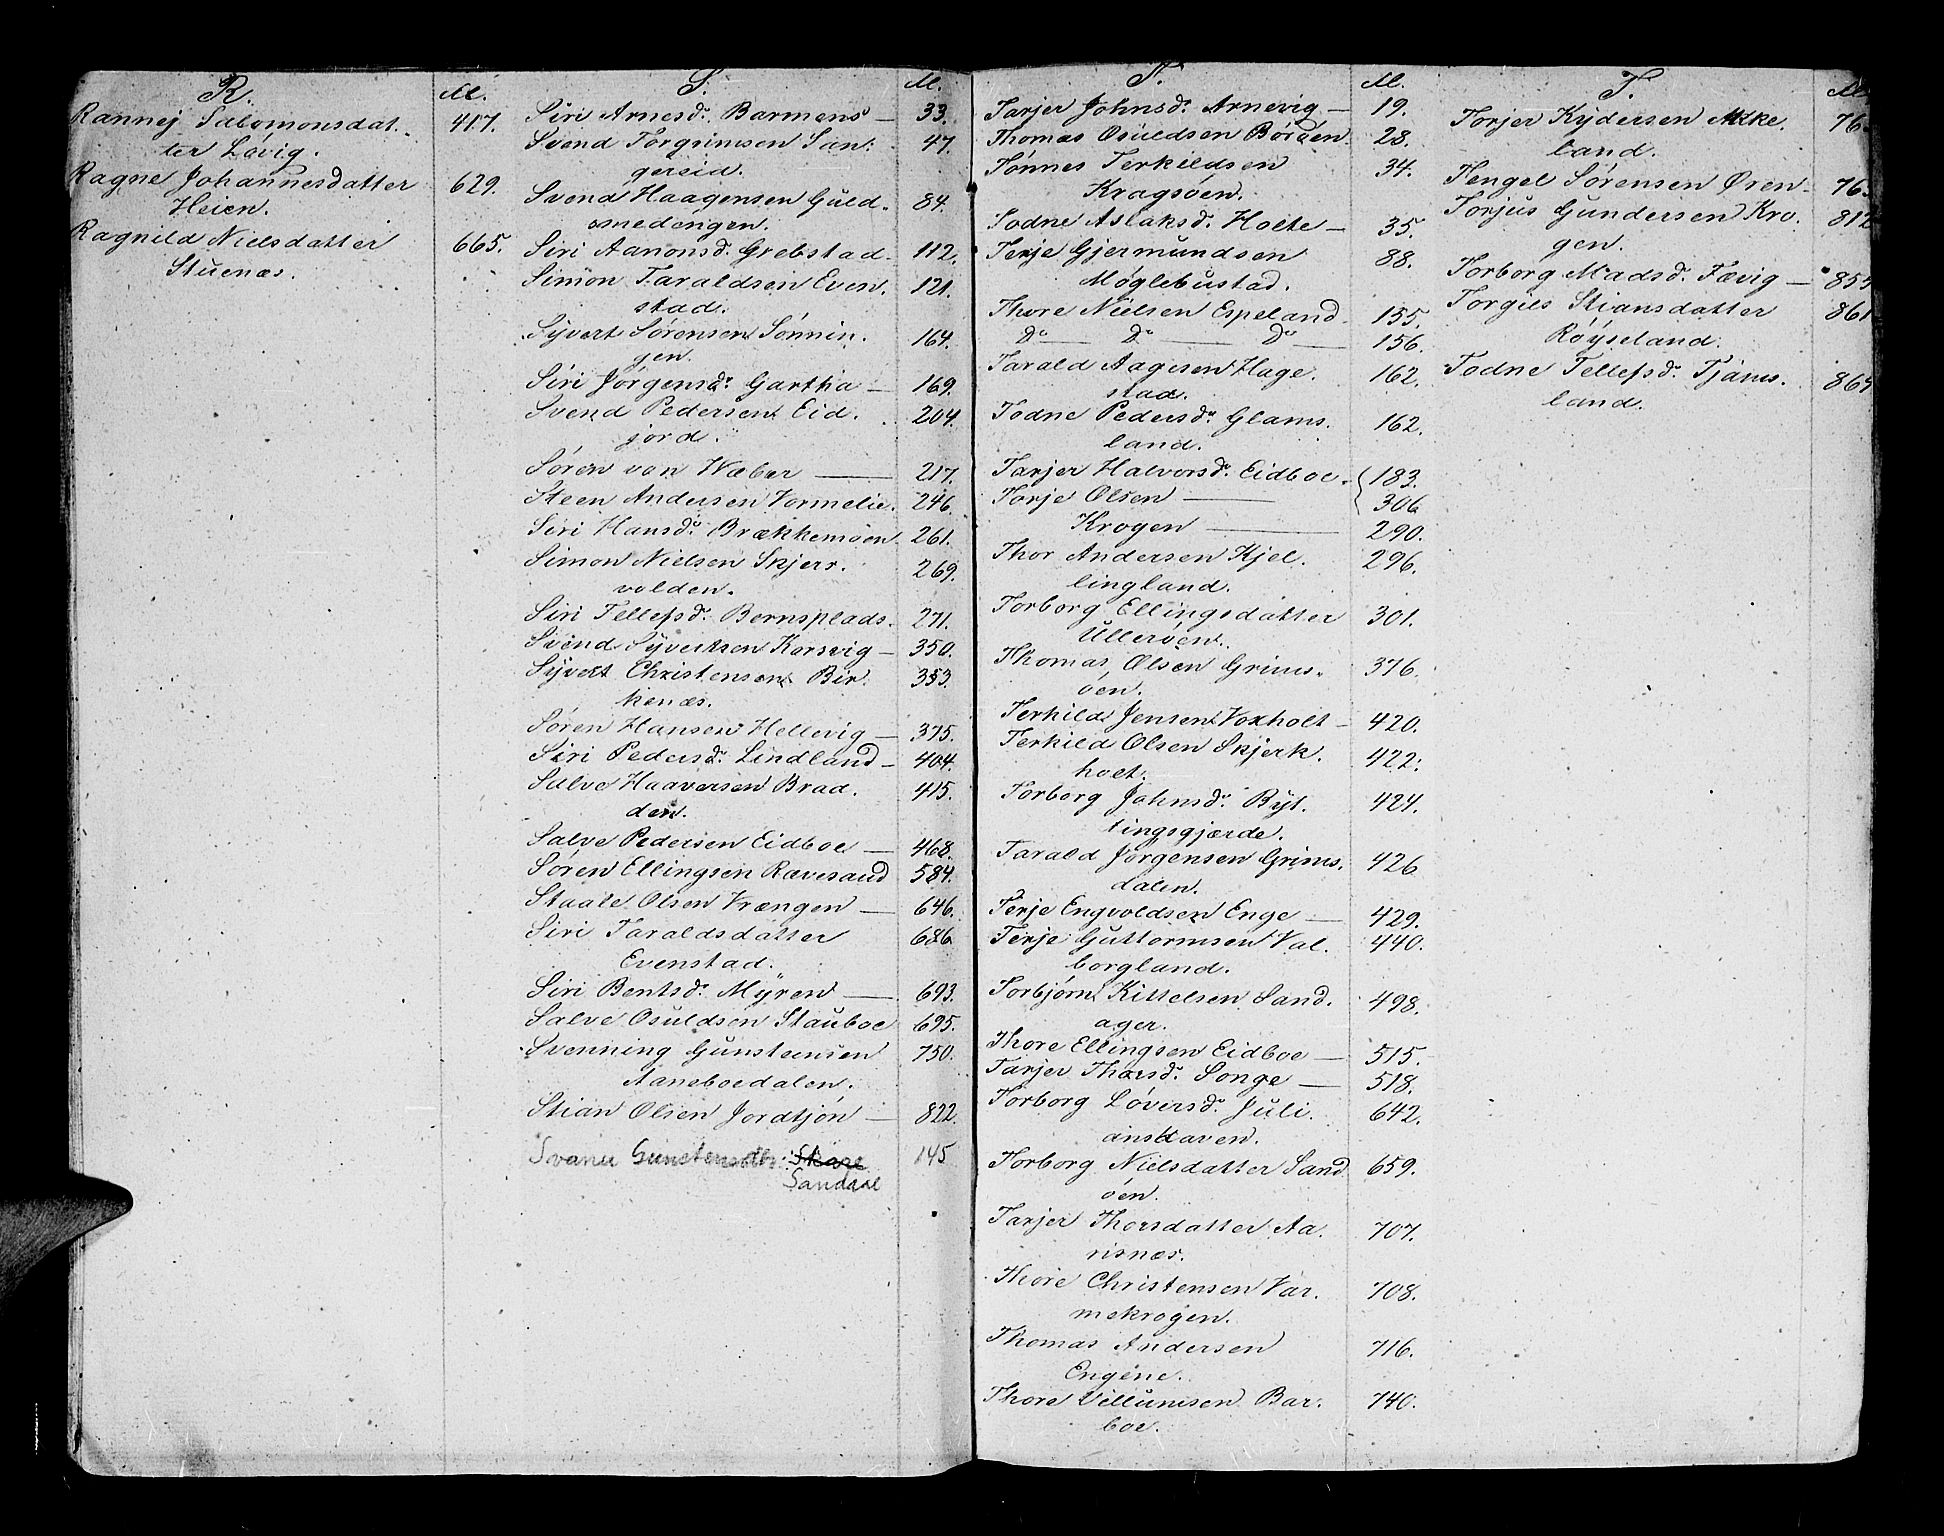 R.
Rannej Salomonsdat- 417.
ter Lavig.
Ragne Johannesdatter 629.
Heien.
Ragnild Nielsdatter 665.
Stuenæs.
S.
Siri Arnesdr. Barmens — 33.
Svend Torgrimsen San- 47.
gereid.
Svend Haagensen Guld- 84.
smedengen.
Siri Aanonsdr. Grebstad. 112.
Simon Taraldsen Even- 121.
stad.
Syvert Sørensen Sønnin- 164.
gen.
Siri Jørgensdr. Gartha — 169.
Svend Pedersen Eid- 204.
jord.
Søren von Wæber — 217.
Steen Andersen Vormelie. 246.
Siri Hansdr. Brækkemoen. 261.
Simon Nielsen Skjers- 269.
volden.
Siri Tellefsdr. Bernsplads. 271.
Svend Syvertsen Korsvig — 350.
Syvert Christensen Bir- 353.
kenæs.
Søren Hansen Hellevig — 375.
Siri Pedersdr. Lindland — 404.
Salve Haaversen Brad- 415.
den.
Salve Pedersen Eidboe — 468.
Søren Ellingsen Rævesand 584.
Staale Olsen Vrængen — 646.
Siri Taraldsdatter 686
Evenstad.
Siri Bentsdr. Myren — 693.
Salve Osuldsen Stauboe 695.
Svenning Gunstensen 750.
Aaneboedalen.
Stian Olsen Jordtjøn — 822.
Gunstensdtr. Skare 145
Sandaae
T.
Tarjer Johnsdr. Arnevig — 19.
Thomas Osuldsen Böröen. 28.
Tönnes Terkildsen 34.
Kragsöen.
Todne Aslaksdr. Holte — 35.
Terje Gjermundsen 88.
Møglebustad.
Thore Nielsen Espeland. 155.
Do — Do — Do — 156.
Tarald Aagesen Hage- 162.
stad.
Todne Pedersdr. Glams- 162.
land.
Tarjer Halvorsdr. Eidboe. { 183.
Torje Olsen — 306
Krogen — 290.
Thor Andersen Kjel- 296.
lingland.
Torborg Ellingsdatter 301.
Ulleröen.
Thomas Olsen Grims- 376.
öen.
Terkild Jensen Voxholt — 420.
Terkild Olsen Skjerk- 422.
holt.
Torborg Johnsdr. Byt- 424.
tingsgjærde.
Tarald Jørgensen Grims- 426
dalen.
Terje Engvoldsen Enge — 429.
Terje Guttormsen Val- 440.
borgland.
Torbjørn Kittelsen Sand- 498.
ager.
Thore Ellingsen Eidboe — 515.
Tarjer Thorsdr. Songe — 518.
Torborg Løversdr. Juli- 642.
anshaven.
Torborg Nielsdatter Sand 659.
öen.
Tarjer Thorsdatter Aa- 707.
risnæs.
Thore Christensen Var- 708.
mekrogen.
Thomas Andersen 716.
Engene.
Thore Villumsen Bar- 740.
boe.
T.
Torjer Kydersen Mike- 76
land.
Tengel Sørensen Øren- 76
Torjus Gundersen Kro- 812
gen.
Torborg Madsdr. Fævig — 855
Torgils Stiansdatter 861
Røyseland.
Todne Tellefsdr. Tjams- 864
land.